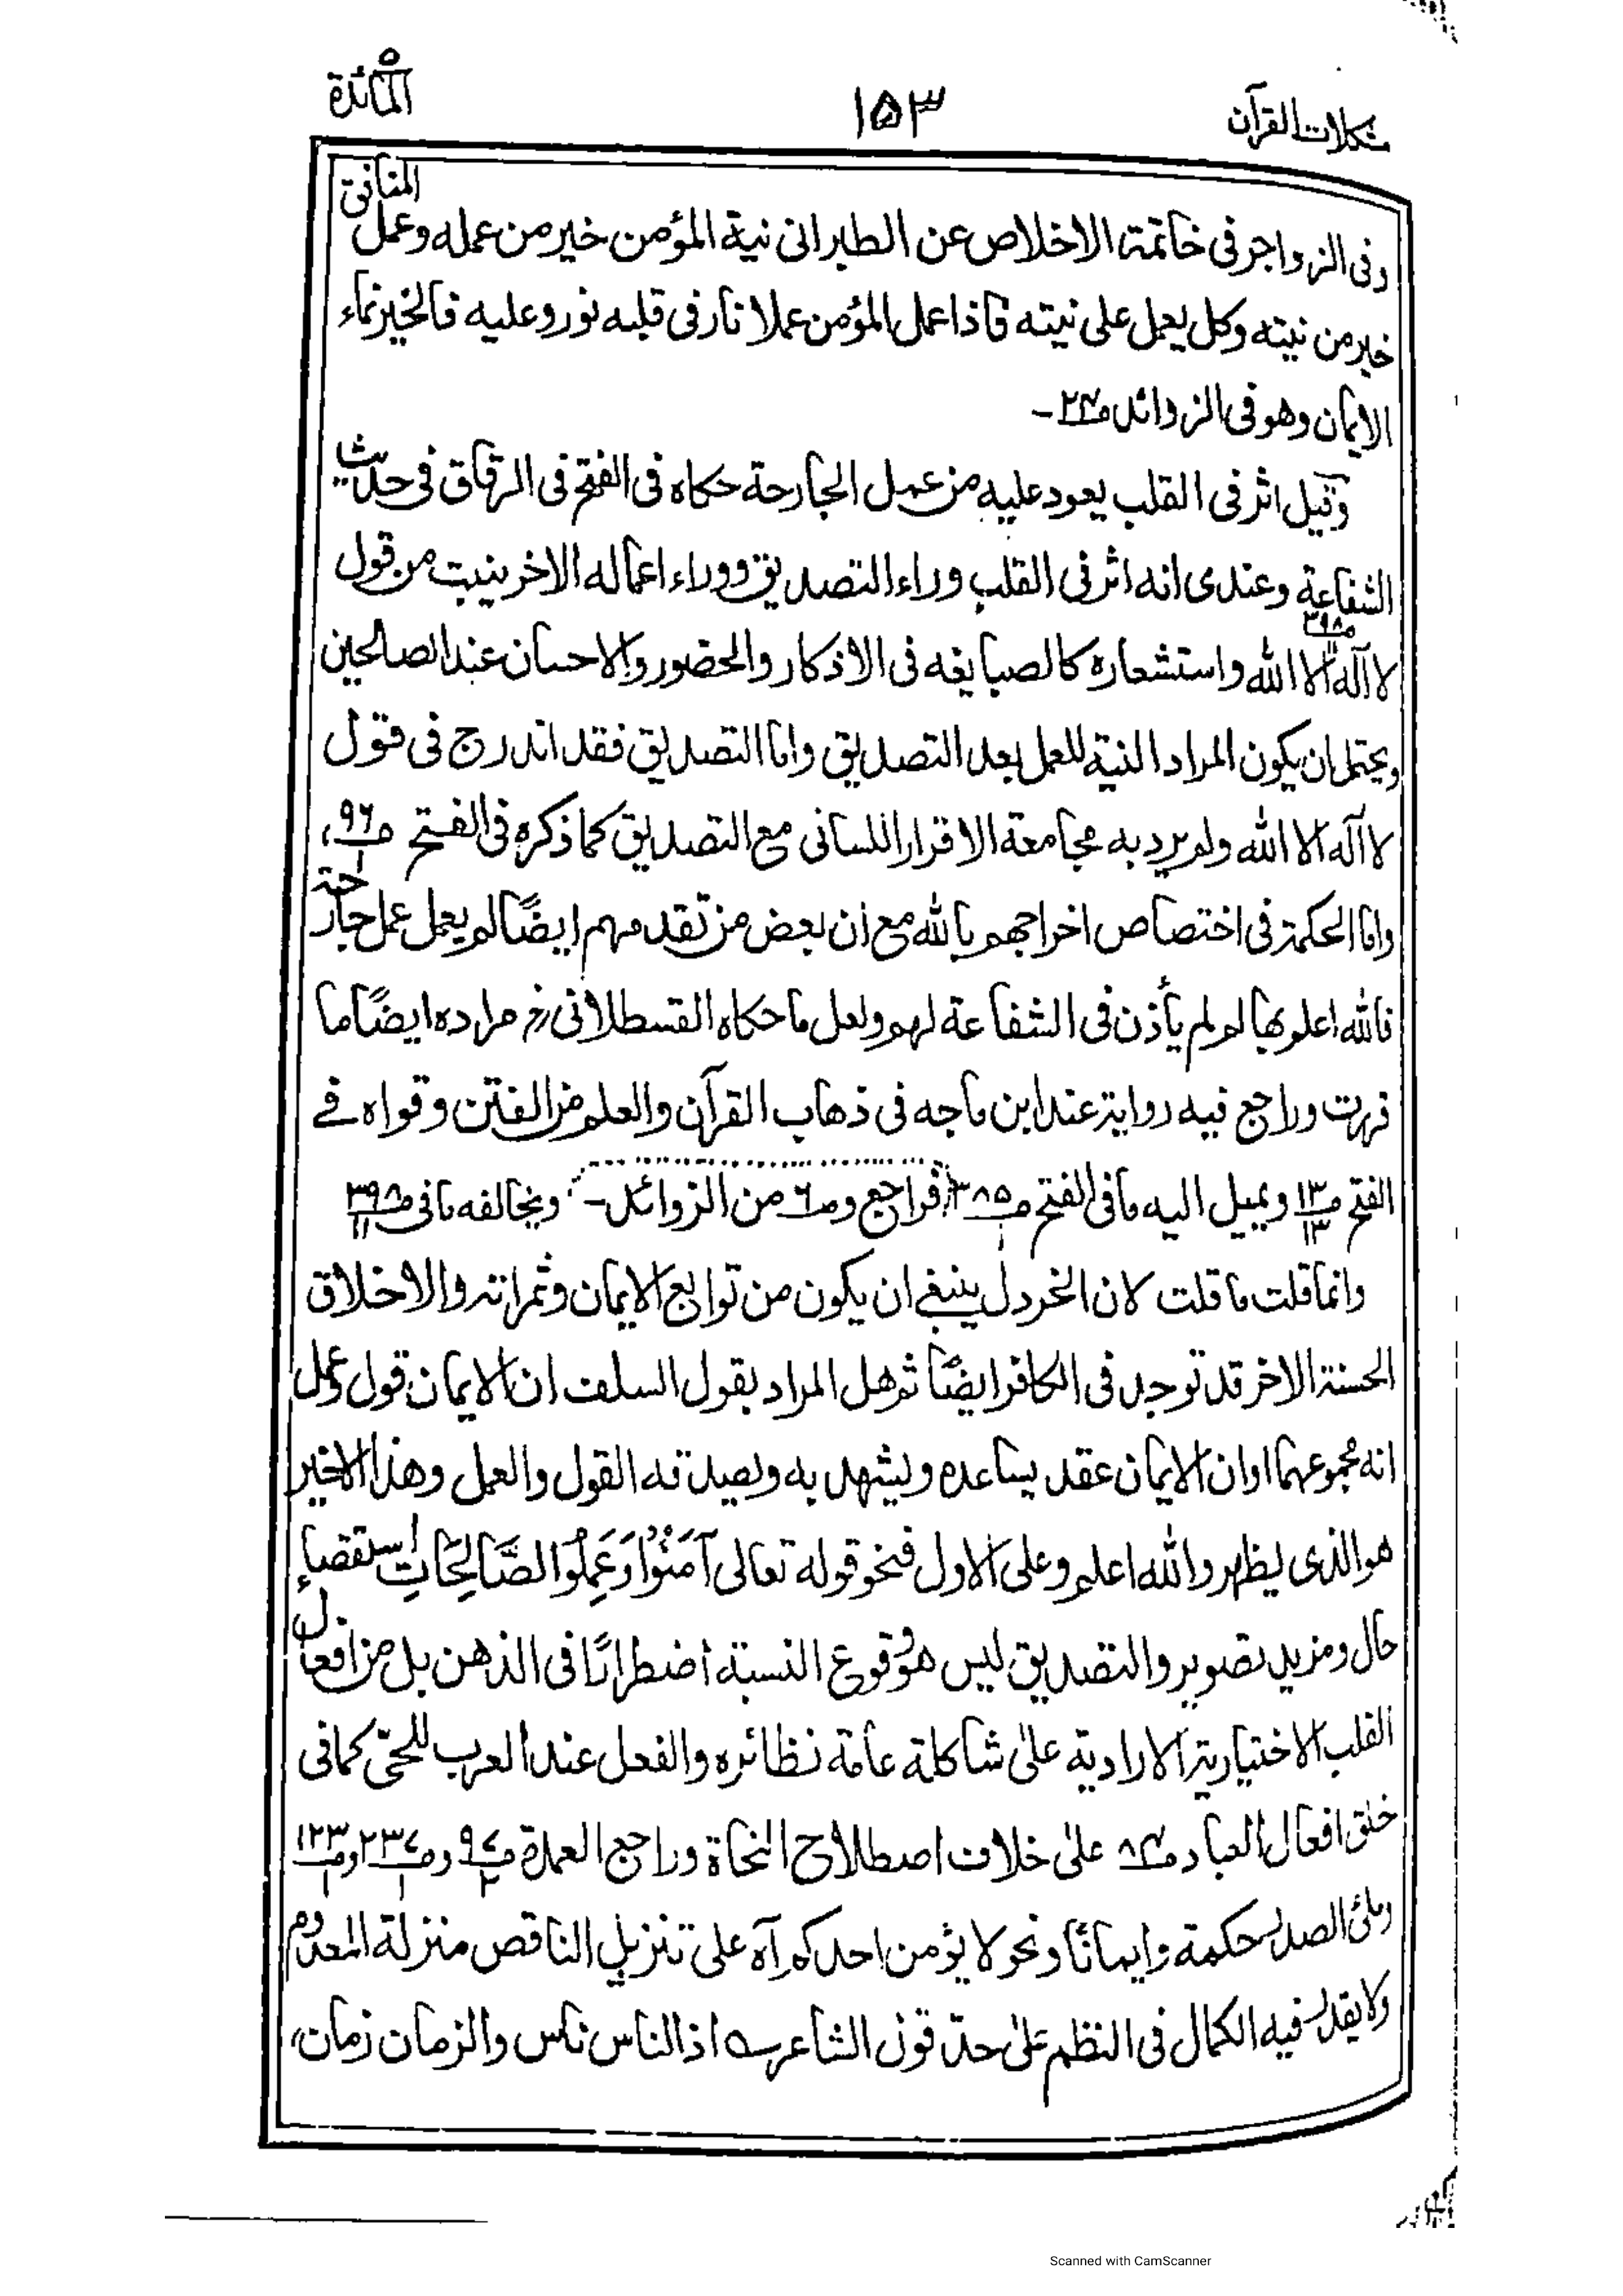 مشكلات القرآن
١٥٣
المائدة
وفى الزواجر فى خاتمة الاخلاص عن الطبرانى نية المؤمن خير من عمله وعمل المنافق
خير من نيته وكل يعمل على نيته فاذا عمل المؤمن عملا نار فى قلبه نور وعليه فالخير نماء
الايمان وهو فى الزوائد ص٢٤-
وقيل اثر فى القلب يعود عليه من عمل الجارحة حكاه فى الفتح فى الرقاق فى حديث
الشفاعة ص٣٩٨ وعندى انه اثر فى القلب وراء التصديق ووراء اعماله الاخر ينبت من قول
لا آله الا الله واستشعاره كالصبا يغه فى الاذكار والحضور والاحسان عند الصالحين
ويحتمل ان يكون المراد النية للعمل بعد التصديق واما التصديق فقد اندرج فى قول
لا آله الا الله ولم يرد به مجامعة الاقرار اللسانى مع التصديق كما ذكره فى الفتح ص٩٦/١،
واما الحكمة فى اختصاص اخراجهم بالله مع ان بعض من تقدمهم ايضًا لم يعمل عمل جارحة
فالله اعلم بها لو لم يأذن فى الشفاعة لهم ولعل ما حكاه القسطلانى مراده ايضًا ما
قررت وراجع فيه رواية عند ابن ماجه فى ذهاب القرآن والعلم من الفتن وقواه فے
الفتح ص١٣/١٣ ويميل اليه مافى الفتح ص٣٨٥/١ (فراجع وص٦ من الزوائد- ويخالفه مافى ص٣٩٨/١١
وانما قلت ما قلت لان الخردل ينبغے ان يكون من توابع الايمان وثمراته والاخلاق
الحسنة الاخر قد توجد فى الكافر ايضًا ثم هل المراد بقول السلف ان الايمان قول وعمل
انه مجموعهما او ان الايمان عقد يساعده ويشهد به ويصدقه القول والعمل وهذا الاخير
هو الذى يظهر والله اعلم وعلى الاول فنحو قوله تعالى آمَنُوْا وَعَمِلُوا الصَّالِحَاتِ استقصاء
حال ومزيد تصوير والتصديق ليس هو وقوع النسبة اضطرارًا فى الذهن بل من افعال
القلب الاختيارية الارادية علىٰ شاكلة عامة نظائره والفعل عند العرب للحىّ كما فى
خلق افعال العباد ص٨٤ علىٰ خلاف اصطلاح النحاة وراجع العمدة ص٩٧/٢ وص٢٣٧/١ وص١٢٣/١
وملئ الصدر حكمة وايمانًا ونحو لا يؤمن احدكم آه على تنزيل الناقص منزلة المعدوم
ولا يقدر فيه الكمال فى النظم علىٰ حدّ قول الشاعر ؎ اذ الناس ناس والزمان زمان،
Scanned with CamScanner